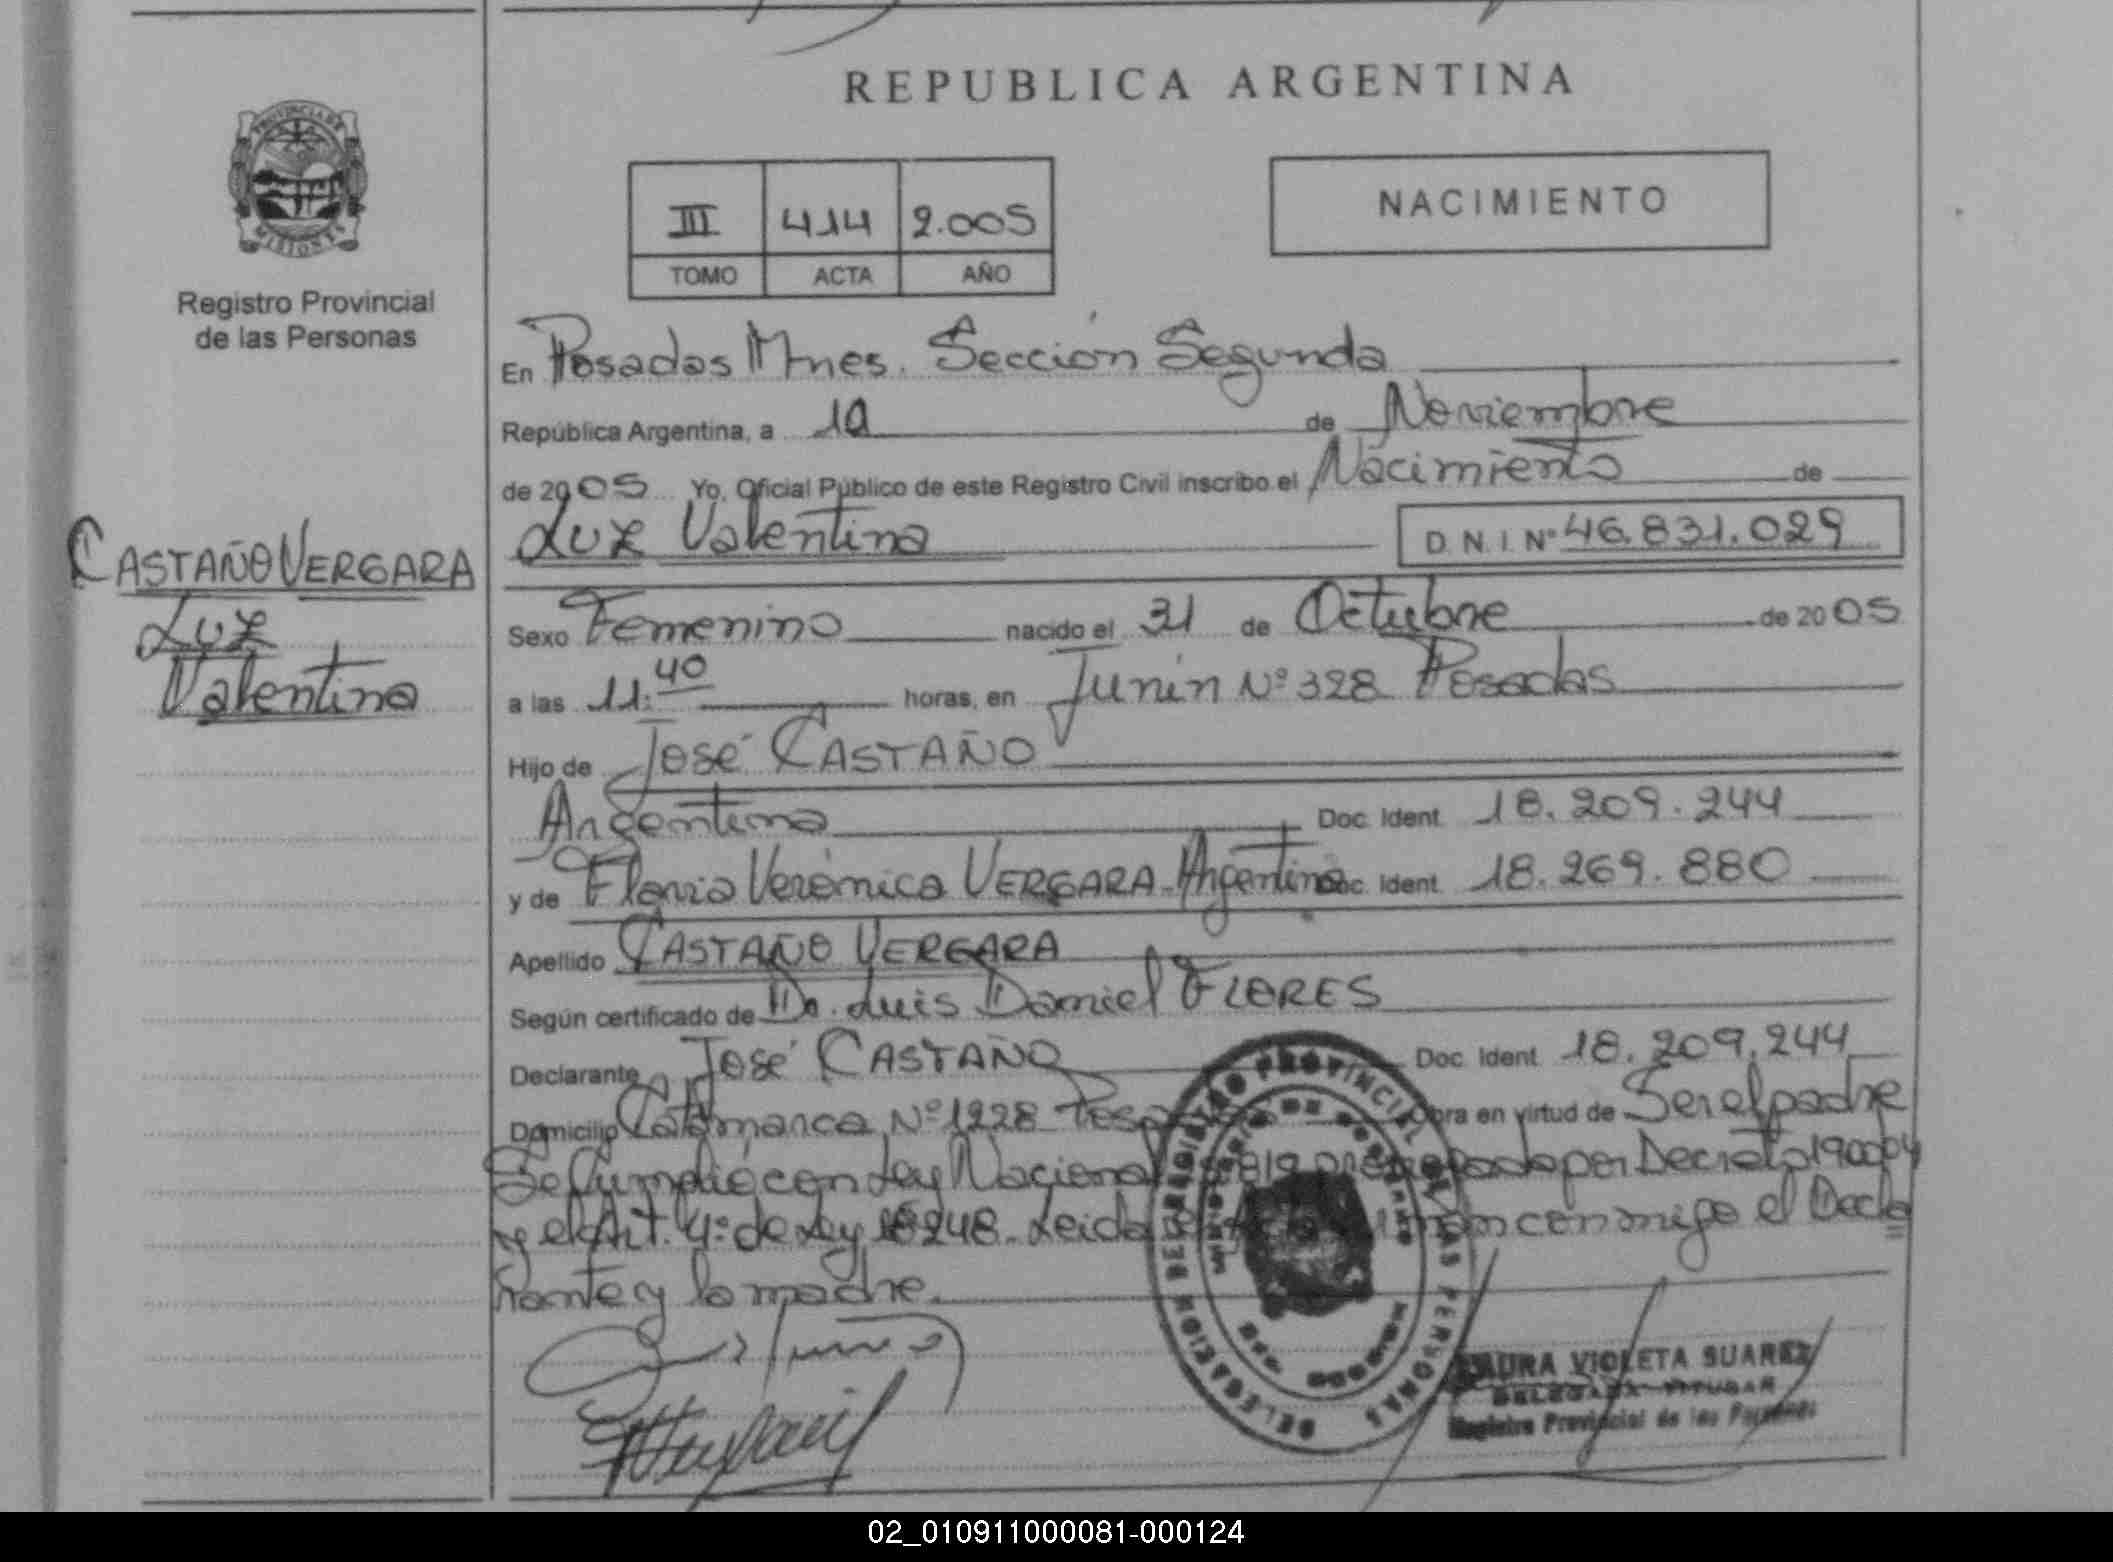 REPUBLICA ARGENTINA
PROVINCIA DE
MISIONES
Registro Provincial
de las Personas
III 414 2.005
TOMO ACTA AÑO
NACIMIENTO
En Posadas Mnes. Sección Segunda
República Argentina, a 10 de Noviembre
de 2005 Yo, Oficial Público de este Registro Civil inscribo el Nacimiento de
Luz Valentina D.N.I. Nº 46.831.029
CASTAÑO VERGARA
Luz
Valentina
Sexo Femenino nacido el 31 de Octubre de 2005
a las 11:40 horas, en Junín Nº 328 Posadas
Hijo de José CASTAÑO
Argentino Doc. Ident. 18.209.244
y de Flavia Verónica VERGARA - Argentina Doc. Ident. 18.269.880
Apellido CASTAÑO VERGARA
Según certificado de Dr. Luis Daniel FLORES
Declarante José CASTAÑO Doc. Ident. 18.209.244
Domicilio Catamarca Nº 1228 Posadas Obra en virtud de Ser el padre
Se Cumplió con Ley Nacional por Decreto 1900/04
y el Art. 4º de Ley 18248. Leida el Acta firman conmigo el Decla
rante y la madre.
REGISTRO PROVINCIAL DE LAS PERSONAS
DELEGACION
LAURA VIOLETA SUAREZ
DELEGADA TITULAR
Registro Provincial de las Personas
02_010911000081-000124